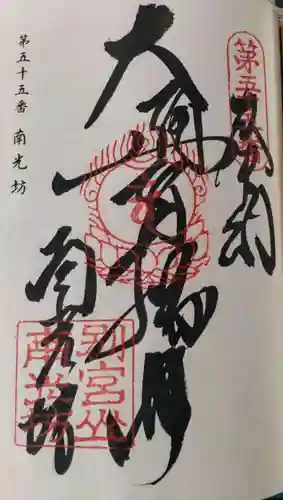 第五十五番
奉納
大通智勝佛
別宮山
南光坊
南光坊
第五十五番 南光坊